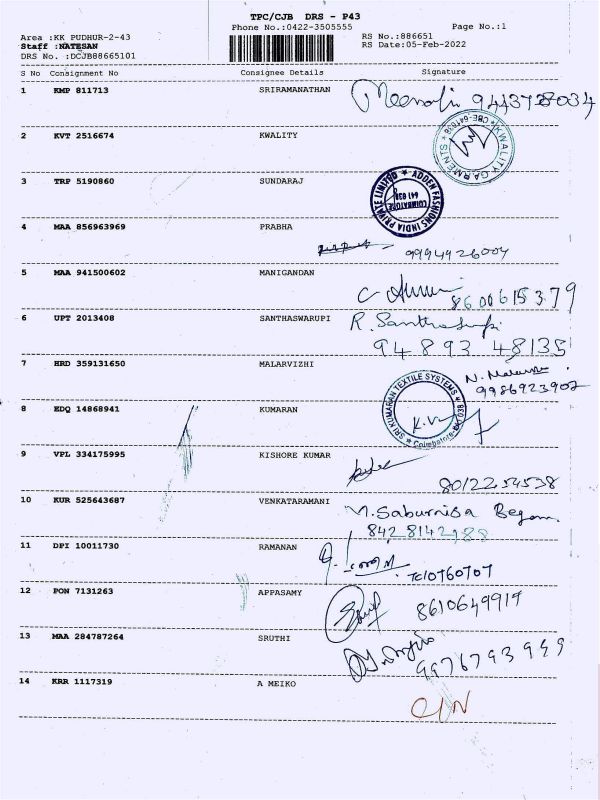 TPC/CJB DRS - P43
Phone No.:0422-3505555 Page No.:1
Area :KK PUDHUR-2-43 RS No.:886651
Staff :NATESAN RS Date:05-Feb-2022
DRS No. :DCJB88665101
S No Consignment No Consignee Details Signature
1 KMP 811713 SRIRAMANATHAN
2 KVT 2516674 KWALITY
KWALITY GARMENTS * CBE-641038 *
3 TRP 5190860 SUNDARAJ
ADDEN FASHIONS INDIA PRIVATE LIMITED * COIMBATORE 641 038
4 MAA 856963969 PRABHA
9994926004
5 MAA 941500602 MANIGANDAN
8600615379
6 UPT 2013408 SANTHASWARUPI
R. Santhaswarupi
94893 48135
7 HRD 359131650 MALARVIZHI
9986923902
8 EDQ 14868941 KUMARAN
SRI KUMARAN TEXTILE SYSTEMS * Coimbatore-641 038 *
9 VPL 334175995 KISHORE KUMAR
8012254538
10 KUR 525643687 VENKATARAMANI
M. Saburnisa Begam
11 DPI 10011730 RAMANAN
12 PON 7131263 APPASAMY
8610649919
13 MAA 284787264 SRUTHI
14 KRR 1117319 A MEIKO